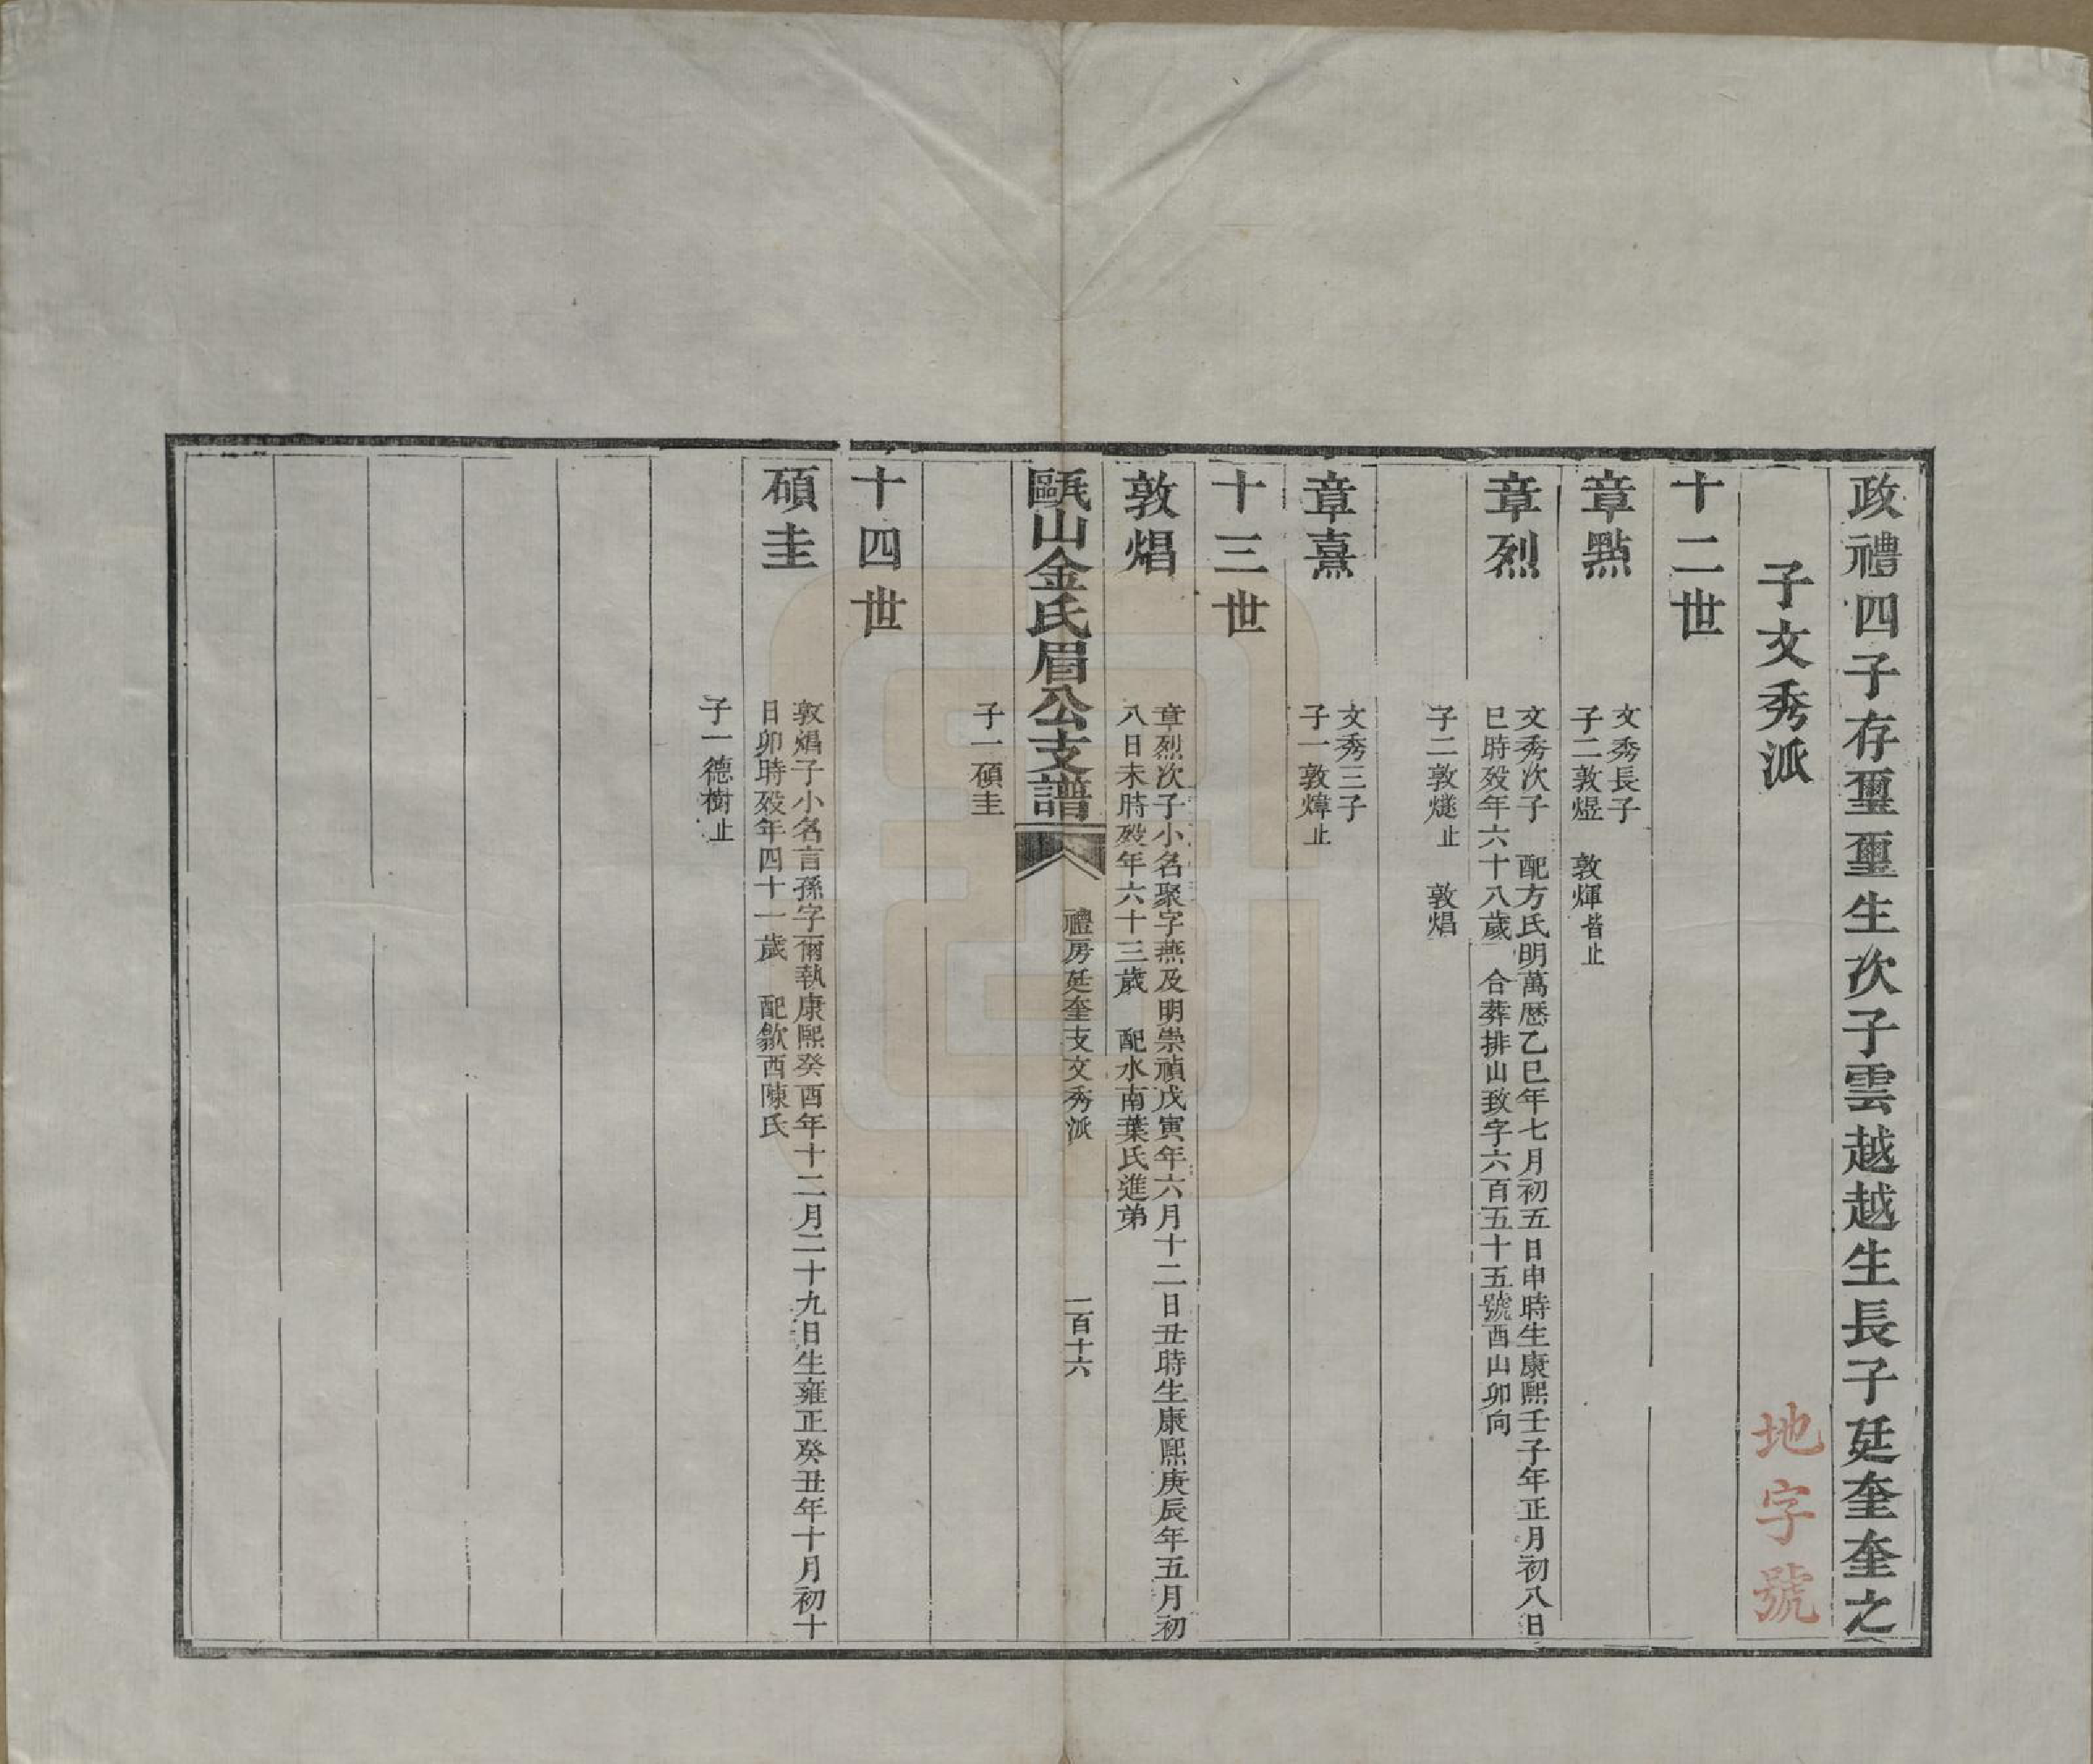 政禮四子存璽璽生次子雲越越生長子廷奎奎之
子文秀派
地字號
十二世
章點
文秀長子
子二敦煜 敦煇皆止
章烈
文秀次子 配方氏明萬厯乙巳年七月初五日申時生康熙壬子年正月初八日
巳時歿年六十八歲 合葬排山致字六百五十五號酉山卯向
子二敦燧止 敦焻
章熹
文秀三子
子一敦煒止
十三世
敦焻
章烈次子小名聚字燕及明崇禎戊寅年六月十二日丑時生康熙庚辰年五月初
八日未時歿年六十三歲 配水南葉氏進弟
甌山金氏眉公支譜
禮房廷奎支文秀派
一百十六
子一碩圭
十四世
碩圭
敦焻子小名言孫字爾執康熙癸酉年十二月二十九日生雍正癸丑年十月初十
日卯時歿年四十一歲 配歙西陳氏
子一德樹止